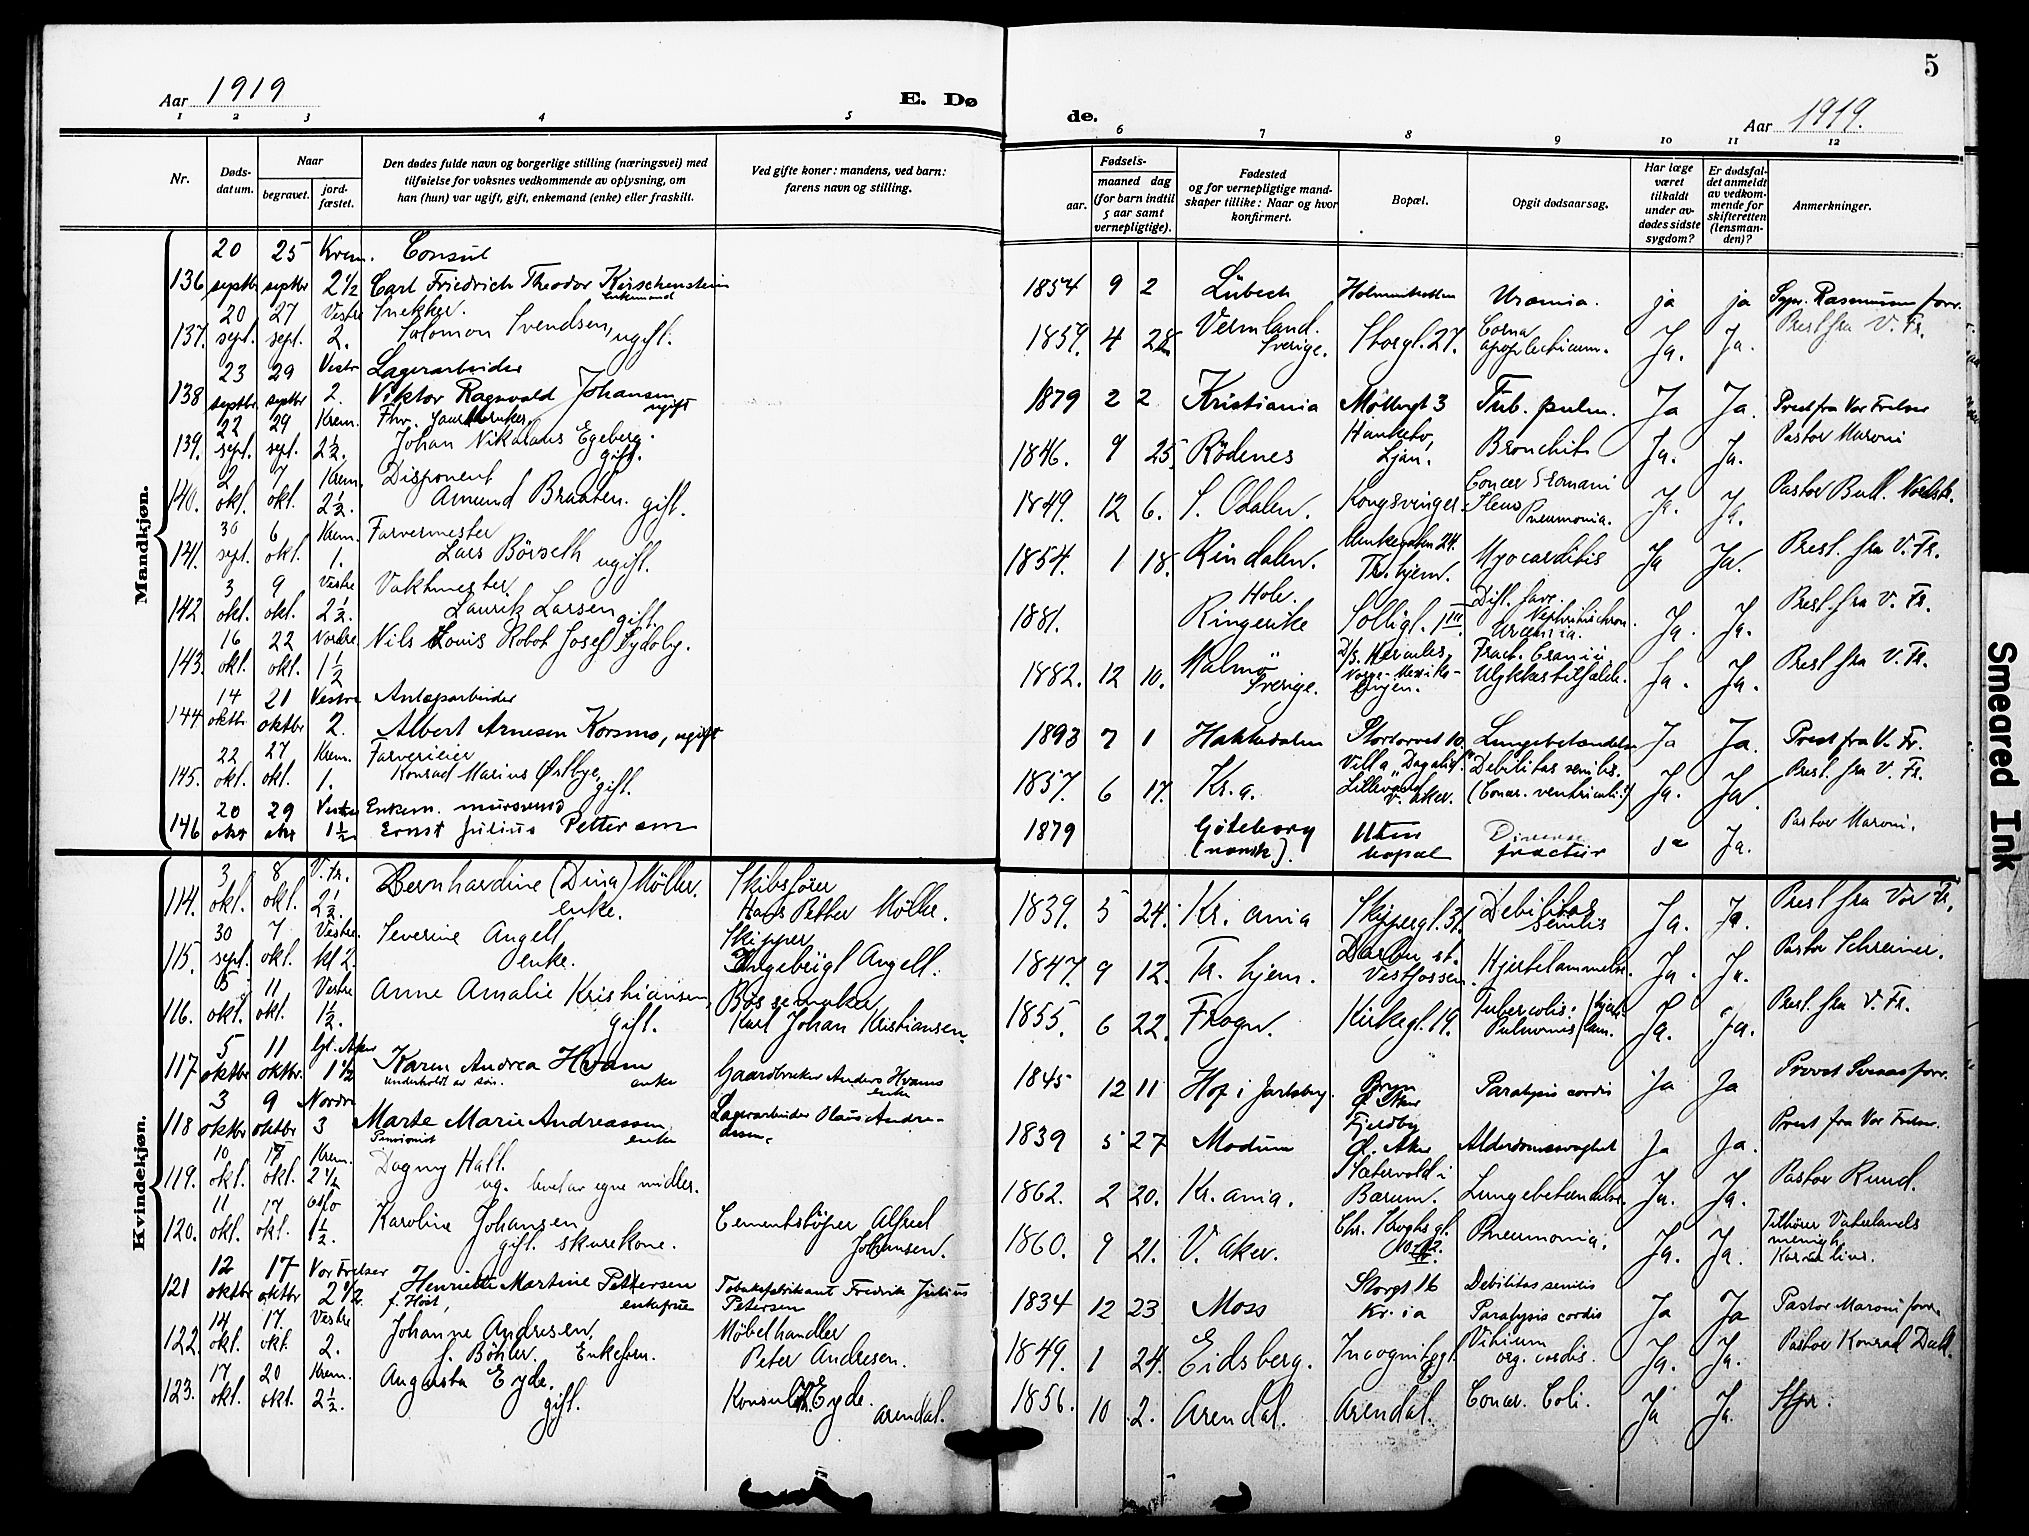 Aar 1919
E. Dø
de.
Aar 1919.
5
1 2 3 4 5 6 7 8 9 10 11 12
Nr.
Døds-
datum.
Naar
begravet.
jord-
fæstet.
Den dødes fulde navn og borgerlige stilling (næringsvei) med
tilføielse for voksnes vedkommende av oplysning, om
han (hun) var ugift, gift, enkemand (enke) eller fraskilt.
Ved gifte koner: mandens, ved barn:
farens navn og stilling.
Fødsels-
aar.
maaned dag
(for barn indtil
5 aar samt
vernepligtige).
Fødested
og for vernepligtige mand-
skaper tillike: Naar og hvor
konfirmert.
Bopæl.
Opgit dødsaarsag.
Har læge
været
tilkaldt
under av-
dødes sidste
sygdom?
Er dødsfal-
det anmeldt
av vedkom-
mende for
skifteretten
(lensman-
den)?
Anmerkninger.
Mandkjøn.
136 20 septbr 25 septbr Krem. 2 1/2 Consul
Carl Friedrich Theodor Kirschenstein
enkemand
1854 9 2 Lübeck Holmenkollen Uræmia. ja ja Sypr. Rasmussen forr.
137. 20 sept. 27 sept. Vestre 2. Snekker.
Salomon Svendsen, ugift.
1857. 4 28. Vermland. Sverige. Storgt. 27. Coma apoplecticum. Ja. Ja. Prest fra V. Fr.
138 23 septbr. 29 septbr Vestr 2. Lagerarbeider
Viktor Ragnvald Johansen
ugift
1879 2 2 Kristiania Møllergt 3 Tub. pulm. Ja Ja. Prest fra Vor Frelser
139. 22 sept. 29 sept. Krem. 2 1/2. Fhv. gaardbruker,
Johan Nikolaus Egeberg.
gift.
1846. 9 25. Rödenes Hauketo, Ljan. Bronchit Ja. Ja. Pastor Maroni
140. 2 okt. 7 okt. Krem. 2 1/2. Disponent
Amund Braaten. gift.
1849. 12 6. S. Odalen. Kongsvinger Cancer Stomachi Ileus Pneumonia. Ja. Ja. Pastor Bull. Nordstr.
141. 30 sept. 6 okt. Krem. 1. Farvermester
Lars Börseth ugift.
1854. 1 18. Rindalen. Munkegaten 24. Tr.hjem. Myocarditis Ja Ja. Prest. fra V. Fr.
142 3 okt. 9 okt. Vestre 2 1/2. Vaktmester
Lauritz Larsen gift.
1881. Hole. Ringerike Solligt. 1 III. Nephritis chron. Uræmia. Ja. Ja. Prest. fra V. Fr.
143. 16 okt. 22 okt. Nordre 1 1/2 Nils Louis Robot Josef Sydoby.
1882. 12 10. Malmö Sverige. D/S. Hercules, Norge-Mexiko-linjen. Fract. Cranii. Ulykkestilfælde. Ja. Ja. Prest fra V. Fr.
144 14 oktbr 20 oktbr Vestre 2. Anlægsarbeider
Albert Arnesen Korsmo, ugift
1893 7 1 Hakkedalen Stortorvet 10 Lungebetændelse Ja Ja. Prest fra V. Fr.
145. 22 okt. 27 okt. Krem. 1. Farverieier
Konrad Marius Østbye, gift.
1857. 6 17. Kr.a. Villa "Dagalid." Lillevand V. Aker. Debilitas senilis. (Cancr. ventriculi?) Ja. Ja. Prest. fra V. Fr.
146 20 okt 29 okt Vestre 1 1/2 Enkem. mursvend
Ernst Julius Pettersen
1879 Göteborg (norsk). Uten bopæl Diverse fractur Ja Ja. Pastor Maroni.
Kvindekjøn.
114. 3 okt. 8 okt. V. Fr. 2 1/2. Bernhardine (Dina) Möller.
enke.
Skibsfører
Hans Petter Möller.
1839. 5 24. Kr.ania Skippergt. 31. Debilitas senilis Ja. Ja. Prest fra Vor Fr.
115. 30 sept. 7 okt. Vestre. kl 2. Severine Angell
enke.
Skipper
Ingebrigt Angell.
1847. 9 12. Tr.hjem. Darbu st. Vestfossen. Hjertelammelse Ja. Ja. Pastor Schreiner.
116. 6 okt. 11 okt. Vestre 1 1/2. Anne Amalie Kristiansen,
gift.
Bössemaker
Karl Johan Kristiansen.
1855. 6 22. Frogn. Kirkegt. 19. Tubercolis: Pulmonis (hjertelam. Ja. Ja. Prest. fra V. Fr.
117 5 oktbr 11 oktbr. Gl. Aker 1 1/2 Karen Andrea Hvam
underholdt av søn. enke
Gaardbruker Anders Hvams
enke
1845 12 11 Hof i Jarlsberg Bryn Ø. Aker Paralysis cordis Ja Ja Provst Svensen forr.
118 3 oktbr 9 oktbr Nordre 3 Marte Marie Andreassen
Pensionist enke
Lagerarbeider Olaus Andre-
assen.
1839 5 27 Modum Fjeldby Ø. Aker Alderdomssvaghet Ja Ja. Prest fra Vor Frelser.
119. 10 okt. 17 okt. Krem. 2 1/2 Dagny Hall.
ug. levet av egne midler.
1862. 2 20. Kr.ania. Slætervold i Bærum. Lungebetændelse. Ja. Ja. Pastor Rund.
120. 11 okt. 17 okt. Oslo 1 1/2. Karoline Johansen
gift. skurekone.
Cementstöper Alfred
Johansen.
1860. 9 21. V. Aker. Chr. Kroghs gt. No 42. Pneumonia. Ja. Ja. Tilhører Vaterlands menigh.
121 12 oktbr 17 oktbr Vor Frelser 2 1/2. Henriette Martine Pettersen
f. Høst, enkefrue
Tobaksfabrikant Fredrik Julius
Petersen
1834 12 23 Moss Storgt 16 Kr.ia Debilitas senilis Paralysis cordis Ja Ja Pastor Maroni forr.
122. 14 okt. 17. okt. Vestre 2. Johanne Andresen,
f. Böhler. Enkefru.
Möbelhandler
Peter Andresen.
1849. 1 24. Eidsberg. Incognitogt. Vitium org. cordis. Ja. Ja. Pastor Konrad Dahl.
123. 17 okt. 20 okt. Krem. 2 1/2. Augusta Eyde.
gift.
Konsul Eyde.
Arendal.
1856. 10 2. Arendal. Arendal. Cancr. Coli. Ja Ja. Sfpr.
Smeared Ink